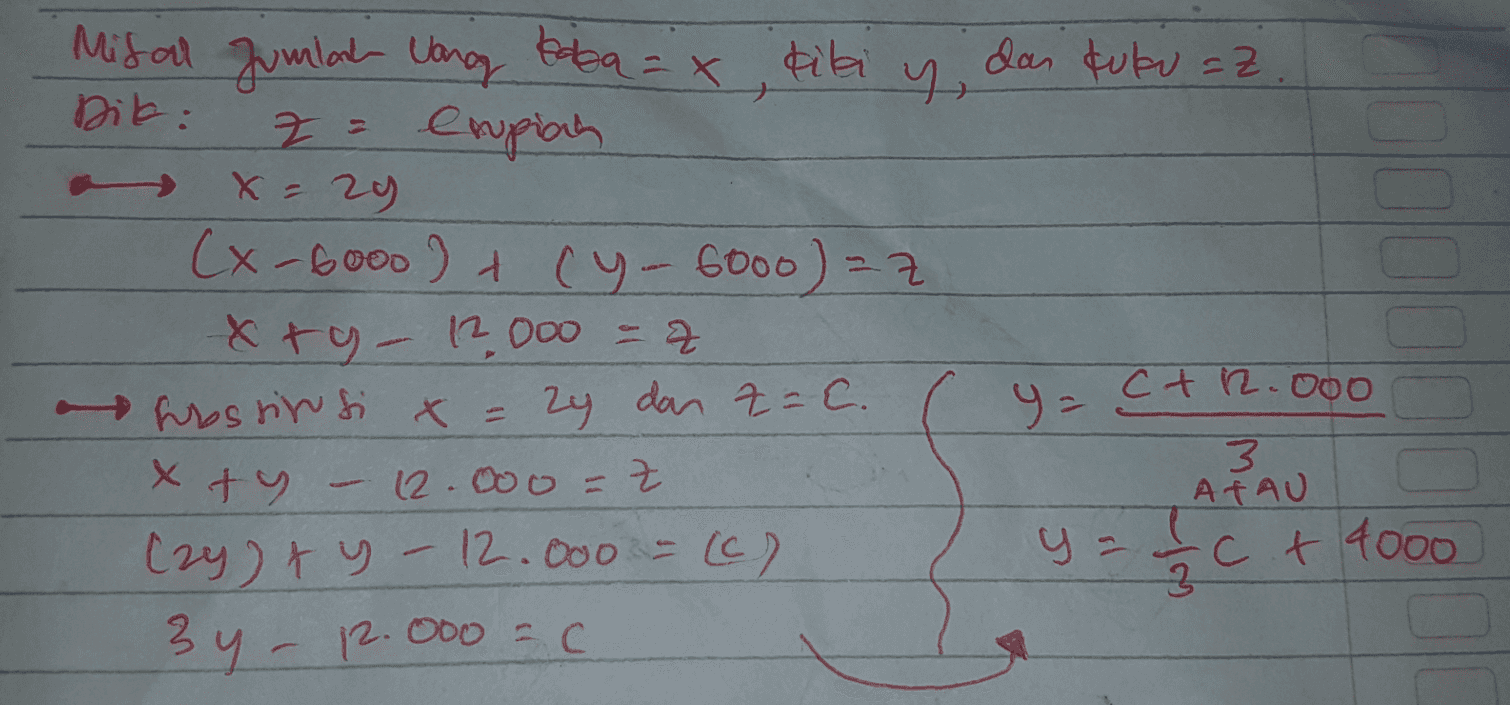 Misal Jumlah Uang baba = x, bibi y, dan bubu = z.
Dik: z = C rupiah
→ x = 2y
(x - 6000) + (y - 6000) = z
x + y - 12.000 = z
→ Subsritusi x = 2y dan z = C.
x + y - 12.000 = z
(2y) + y - 12.000 = (C)
3y - 12.000 = C
y = C + 12.000
3
ATAU
y = 1/3 C + 4000